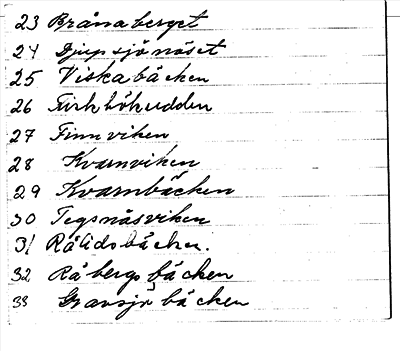 23 Bråna berget
24 Djupsjönäset
25 Viska bäcken
26
27 Finnviken
28 Kvarnviken
29 Kvarnbäcken
30 Tegsnäsviken
31 Rålidsbäcken.
32 Råbergsbäcken
33 Gravsjöbäcken